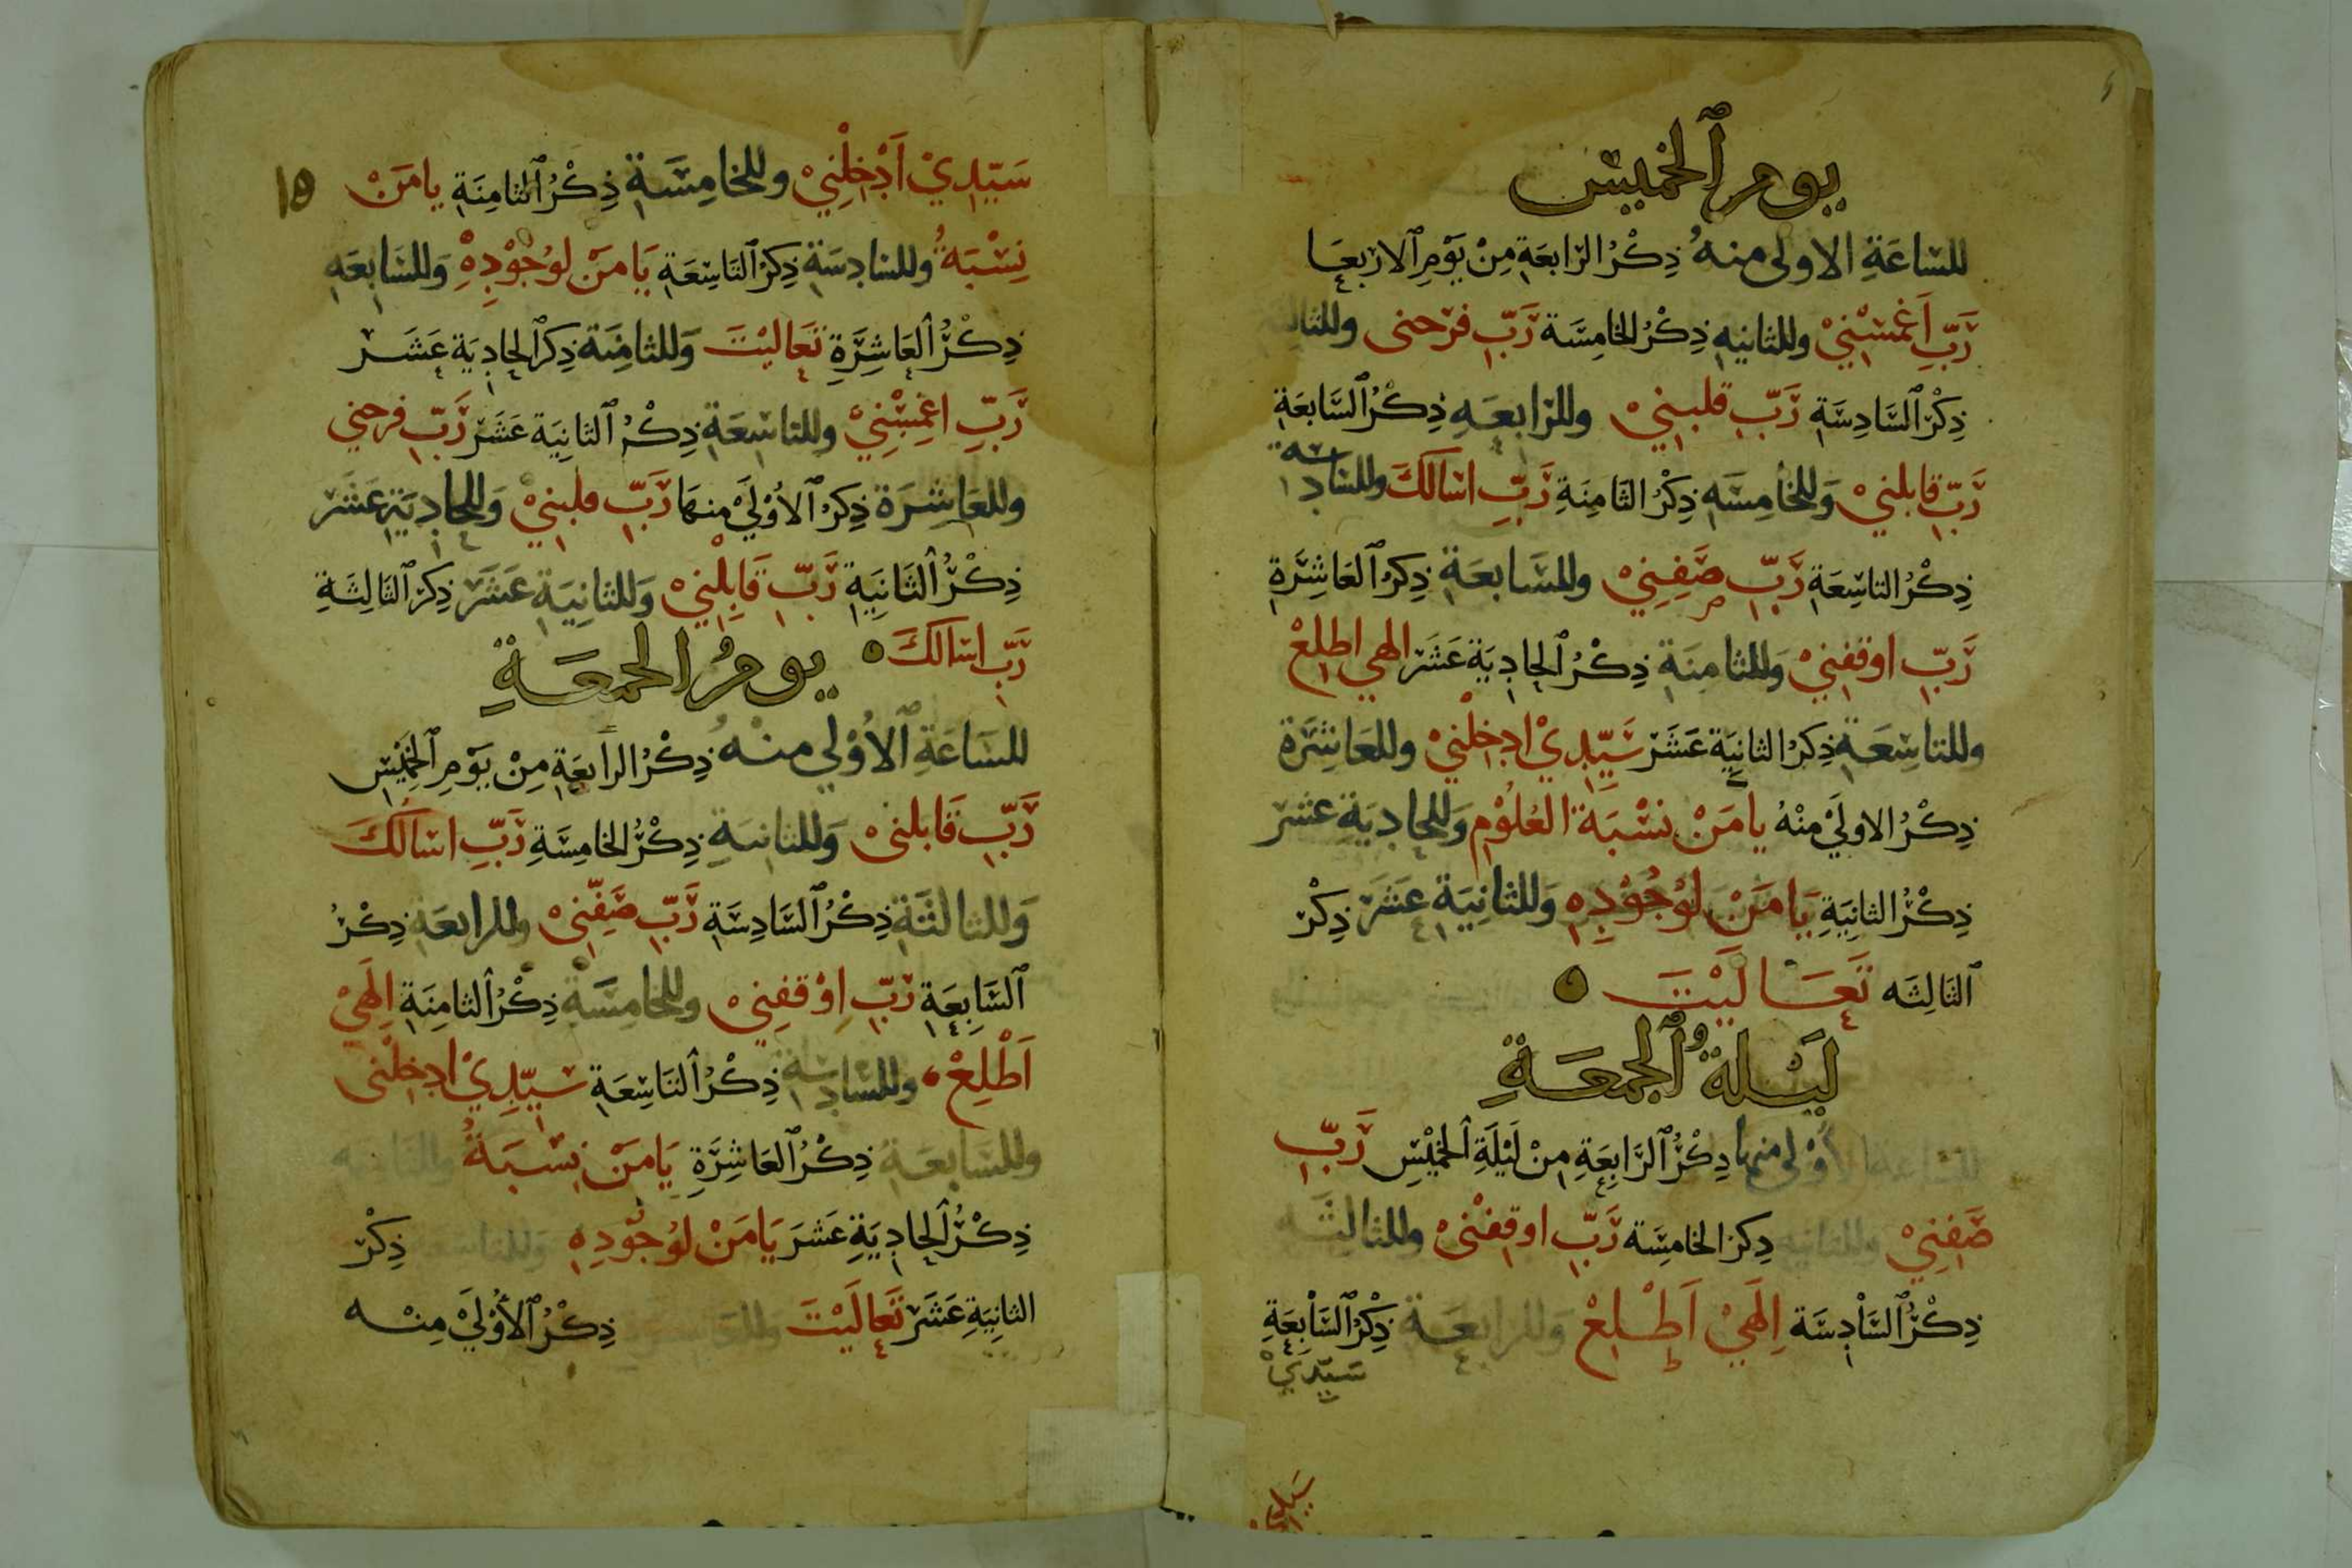 يوم ٱلخميس
للسّاعَةِ الاولى منهُ ذِكْرُ الرّابعَةِ مِنْ يَوْمِ ٱلاربعَا
رَبِّ اَغمِسْنِيْ وللثانيهِ ذِكْرُ الخامِسَة رَبِّ فرّحنى وللثالثة
ذِكْرُ ٱلسَّادِسَةِ رَبِّ قلبنِيْ وللرّابعَهِ ذِكْرُ ٱلسَّابعَةِ
رَبِّ قابلنيْ وَللخامِسَهِ ذِكْرُ الثَامِنَةِ رَبِّ اسَالكَ وللسّادسة
ذِكْرُ التاسِعَةِ رَبِّ صَفِنِيْ وللسَّابعَةِ ذِكرُ ٱلعَاشِرَةِ
رَبِّ اوقفنِيْ وَللثامِنَة ذِكْرُ ٱلحادِيَة عَشَر الهي اطلِعْ
وللتاسِعَةِ ذِكرُ الثانيَة عَشَر سَيّدِيْ ادخِلْنيْ وللعَاشِرَة
ذِكْرُ الاوليْ مِنْهُ يامَنْ نسْبَة العُلُوْم وَللحادِيَة عَشَر
ذِكْرُ الثانِيَةِ يَامَنْ لوُجُوْدِهِ وَللثانِيَةِ عَشَر ذِكْرُ
ٱلثالِثَه تَعَالَيْتَ
لَيْلةُ ٱلجمعَةِ
للسَّاعة الأُوْلى منها ذِكْرُ ٱلرَّابِعَةِ مِنْ لَيْلَةِ ٱلخَمِيْسِ رَبِّ
صَفِنِيْ وللثانيه ذِكرُ الخامِسَة رَبِّ اوقِفْنىْ وللثالثَه
ذِكْرُ ٱلسَّادِسَة اِلَهِيْ اَطْلِعْ وَللرابعَة ذِكْرُ ٱلسَّابِعَةِ
سَيّدِيْ
١٥
سَيّدِيْ اَدْخِلْنِيْ وللخامِسَةِ ذِكْرُ ٱلثامِنَةِ يامَنْ
نِسْبَةُ وللسَّادِسَةِ ذِكرُ ٱلتَاسِعَةِ يَامَنْ لوُجُوْدِهِ وَللسَّابعَهِ
ذِكْرُ ٱلعَاشِرَةِ تَعَاليْتَ وَللثامِنَة ذِكرُ ٱلحادِيَة عَشَر
رَبِّ اغمِسْنِيْ وللتاسِعَة ذِكْرُ ٱلثانِيَة عَشَر رَبِّ فرحني
وللعَاشِرَة ذِكرُ ٱلأوْلَيْ منهَا رَبِّ قلبنِيْ وَللحادِيَةِ عَشَر
ذِكْرُ ٱلثَانِيَةِ رَبِّ قَابِلْنِيْ وَللثانِيَةِ عَشَر ذِكرُ ٱلثَالِثَةِ
رَبِّ اسَالكَ
يومُ الجمعَةِ
للسَاعَةِ ٱلأُوْلي منْهُ ذِكْرُ الرابعَةِ مِنْ يَوْمِ ٱلخَمِيْسِ
رَبِّ قَابلنىْ وَللثانيَةِ ذِكْرُ الخامِسَةِ رَبِّ اسَالُكَ
وَللثالثَةِ ذِكْرُ ٱلسَادِسَةِ رَبِّ صَفِّنىْ وللرابعَةِ ذِكْرُ
ٱلسَّابِعَةِ رَبِّ اوْقفِنِيْ وللخامِسَةِ ذِكْرُ ٱلثامِنَةِ اِلَهِيْ
اَطْلِعْ وللسّادسة ذِكْرُ ٱلتَاسِعَةِ سَيّدِيْ ادخِلْنى
وللسَّابعَةِ ذِكْرُ ٱلعَاشِرَةِ يَامَنْ نِسْبَةُ وللثامنه
ذِكْرُ ٱلحادِيَةِ عَشَر يَامَنْ لوُجُوْدِهِ وَللتاسعَة ذِكْرُ
الثانِيَةِ عَشَر تَعَالَيْتَ وَللعَاشرة ذِكْرُ ٱلأُوْلَيْ مِنْه